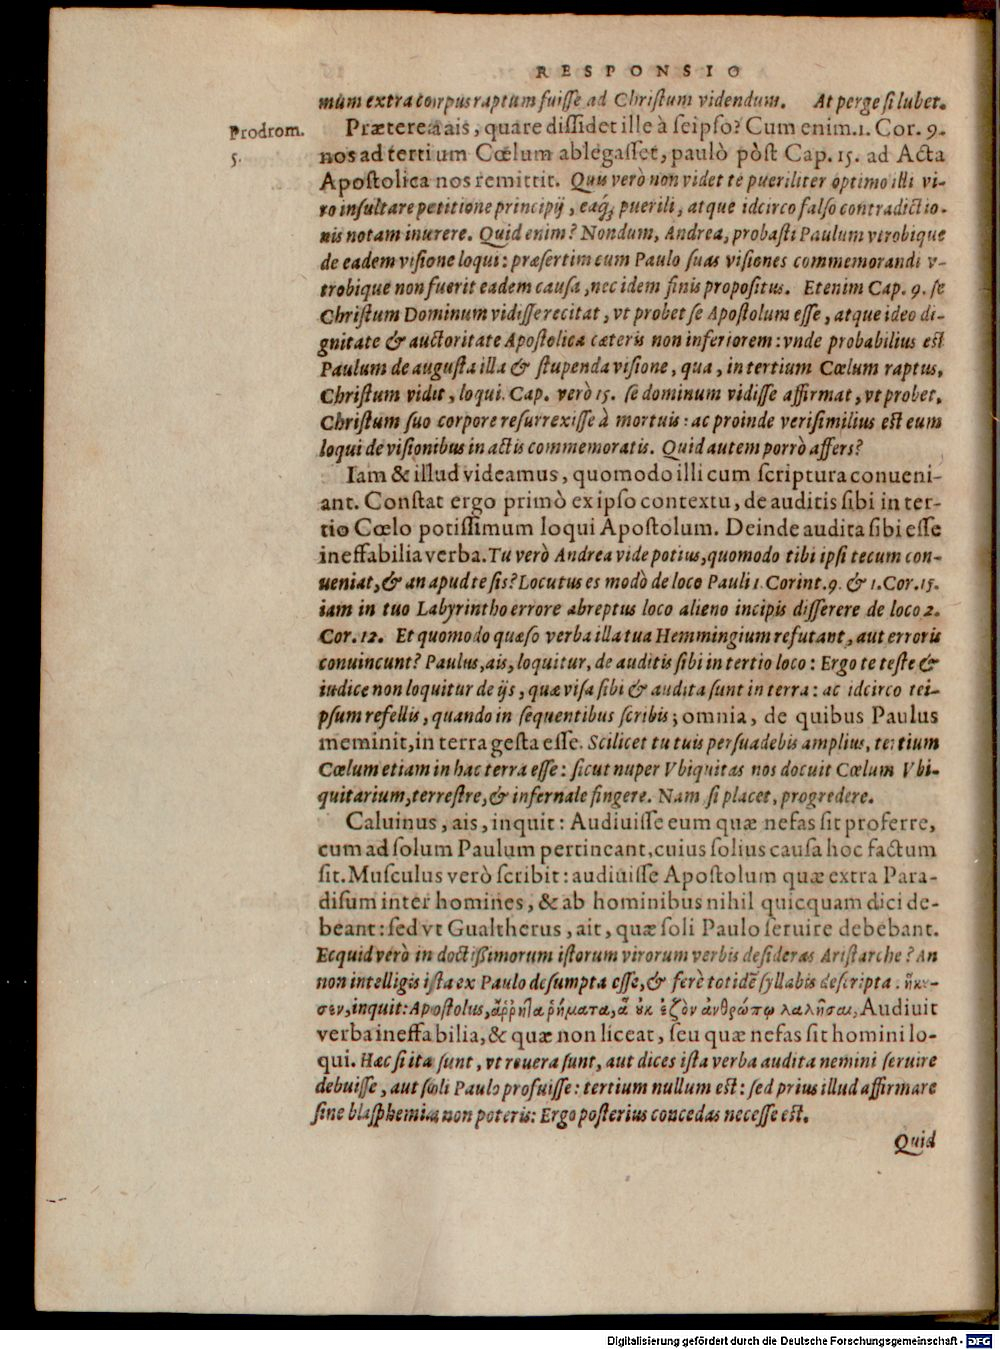 RESPONSIO
mum extra corpus raptum fuiſſe ad Chriſtum videndum. At perge ſi lubet.
Prodrom.
5.
Prætereà ais, quare diſſidet ille à ſeipſo? Cum enim. 1. Cor. 9.
nos ad tertium Cœlum ablegaſſet, paulò pòſt Cap. 15. ad Acta
Apoſtolica nos remittit. Quis verò non videt te pueriliter optimo illi vi-
ro inſultare petitione principij, eaq́; puerili, atque idcirco falſo contradictio-
nis notam inurere. Quid enim? Nondum, Andrea, probaſti Paulum vtrobique
de eadem viſione loqui: præſertim cum Paulo ſuas viſiones commemorandi v-
trobique non fuerit eadem cauſa, nec idem finis propoſitus. Etenim Cap. 9. ſe
Chriſtum Dominum vidiſſe recitat, vt probet ſe Apoſtolum eſſe, atque ideo di-
gnitate & auctoritate Apoſtolica cæteris non inferiorem: vnde probabilius eſt
Paulum de auguſta illa & ſtupenda viſione, qua, in tertium Cœlum raptus,
Chriſtum vidit, loqui. Cap. verò 15. ſe dominum vidiſſe affirmat, vt probet,
Chriſtum ſuo corpore reſurrexiſſe à mortuis: ac proinde veriſimilius eſt eum
loqui de viſionibus in actis commemoratis. Quid autem porrò affers?
Iam & illud videamus, quomodo illi cum ſcriptura conueni-
ant. Conſtat ergo primò ex ipſo contextu, de auditis ſibi in ter-
tio Cœlo potiſſimum loqui Apoſtolum. Deinde audita ſibi eſſe
ineffabilia verba. Tu verò Andrea vide potius, quomodo tibi ipſi tecum con-
ueniat, & an apud te ſis? Locutus es modò de loco Pauli 1. Corint. 9. & 1. Cor. 15.
iam in tuo Labyrintho errore abreptus loco alieno incipis diſſerere de loco 2.
Cor. 12. Et quomodo quæſo verba illa tua Hemmingium refutant, aut erroris
conuincunt? Paulus, ais, loquitur, de auditis ſibi in tertio loco: Ergo te teſte &
iudice non loquitur de ijs, quæ viſa ſibi & audita ſunt in terra: ac idcirco tei-
pſum refellis, quando in ſequentibus ſcribis; omnia, de quibus Paulus
meminit, in terra geſta eſſe. Scilicet tu tuis perſuadebis amplius, tertium
Cœlum etiam in hac terra eſſe: ſicut nuper Vbiquitas nos docuit Cœlum Vbi-
quitarium, terreſtre, & infernale fingere. Nam ſi placet, progredere.
Caluinus, ais, inquit: Audiuiſſe eum quæ nefas ſit proferre,
cum ad ſolum Paulum pertineant, cuius ſolius cauſa hoc factum
ſit. Muſculus verò ſcribit: audiuiſſe Apoſtolum quæ extra Para-
diſum inter homines, & ab hominibus nihil quicquam dici de-
beant: ſed vt Gualtherus, ait, quæ ſoli Paulo ſeruire debebant.
Ecquid verò in doctiſſimorum iſtorum virorum verbis deſideras Ariſtarche? An
non intelligis iſta ex Paulo deſumpta eſſe, & ferè totidẽ ſyllabis deſcripta: ἤκȣ-
σεν, inquit: Apoſtolus, ἄῤῥηλα ῥήματα, ἃ ȣκ ἐξὸν ἀνθρώπῳ λαλῆσαι, Audiuit
verba ineffabilia, & quæ non liceat, ſeu quæ nefas ſit homini lo-
qui. Hæc ſi ita ſunt, vt reuera ſunt, aut dices iſta verba audita nemini ſeruire
debuiſſe, aut ſoli Paulo profuiſſe: tertium nullum eſt: ſed prius illud affirmare
ſine blaſphemia non poteris: Ergo poſterius concedas neceſſe eſt.
Quid
Digitalisierung gefördert durch die Deutsche Forschungsgemeinschaft - DFG